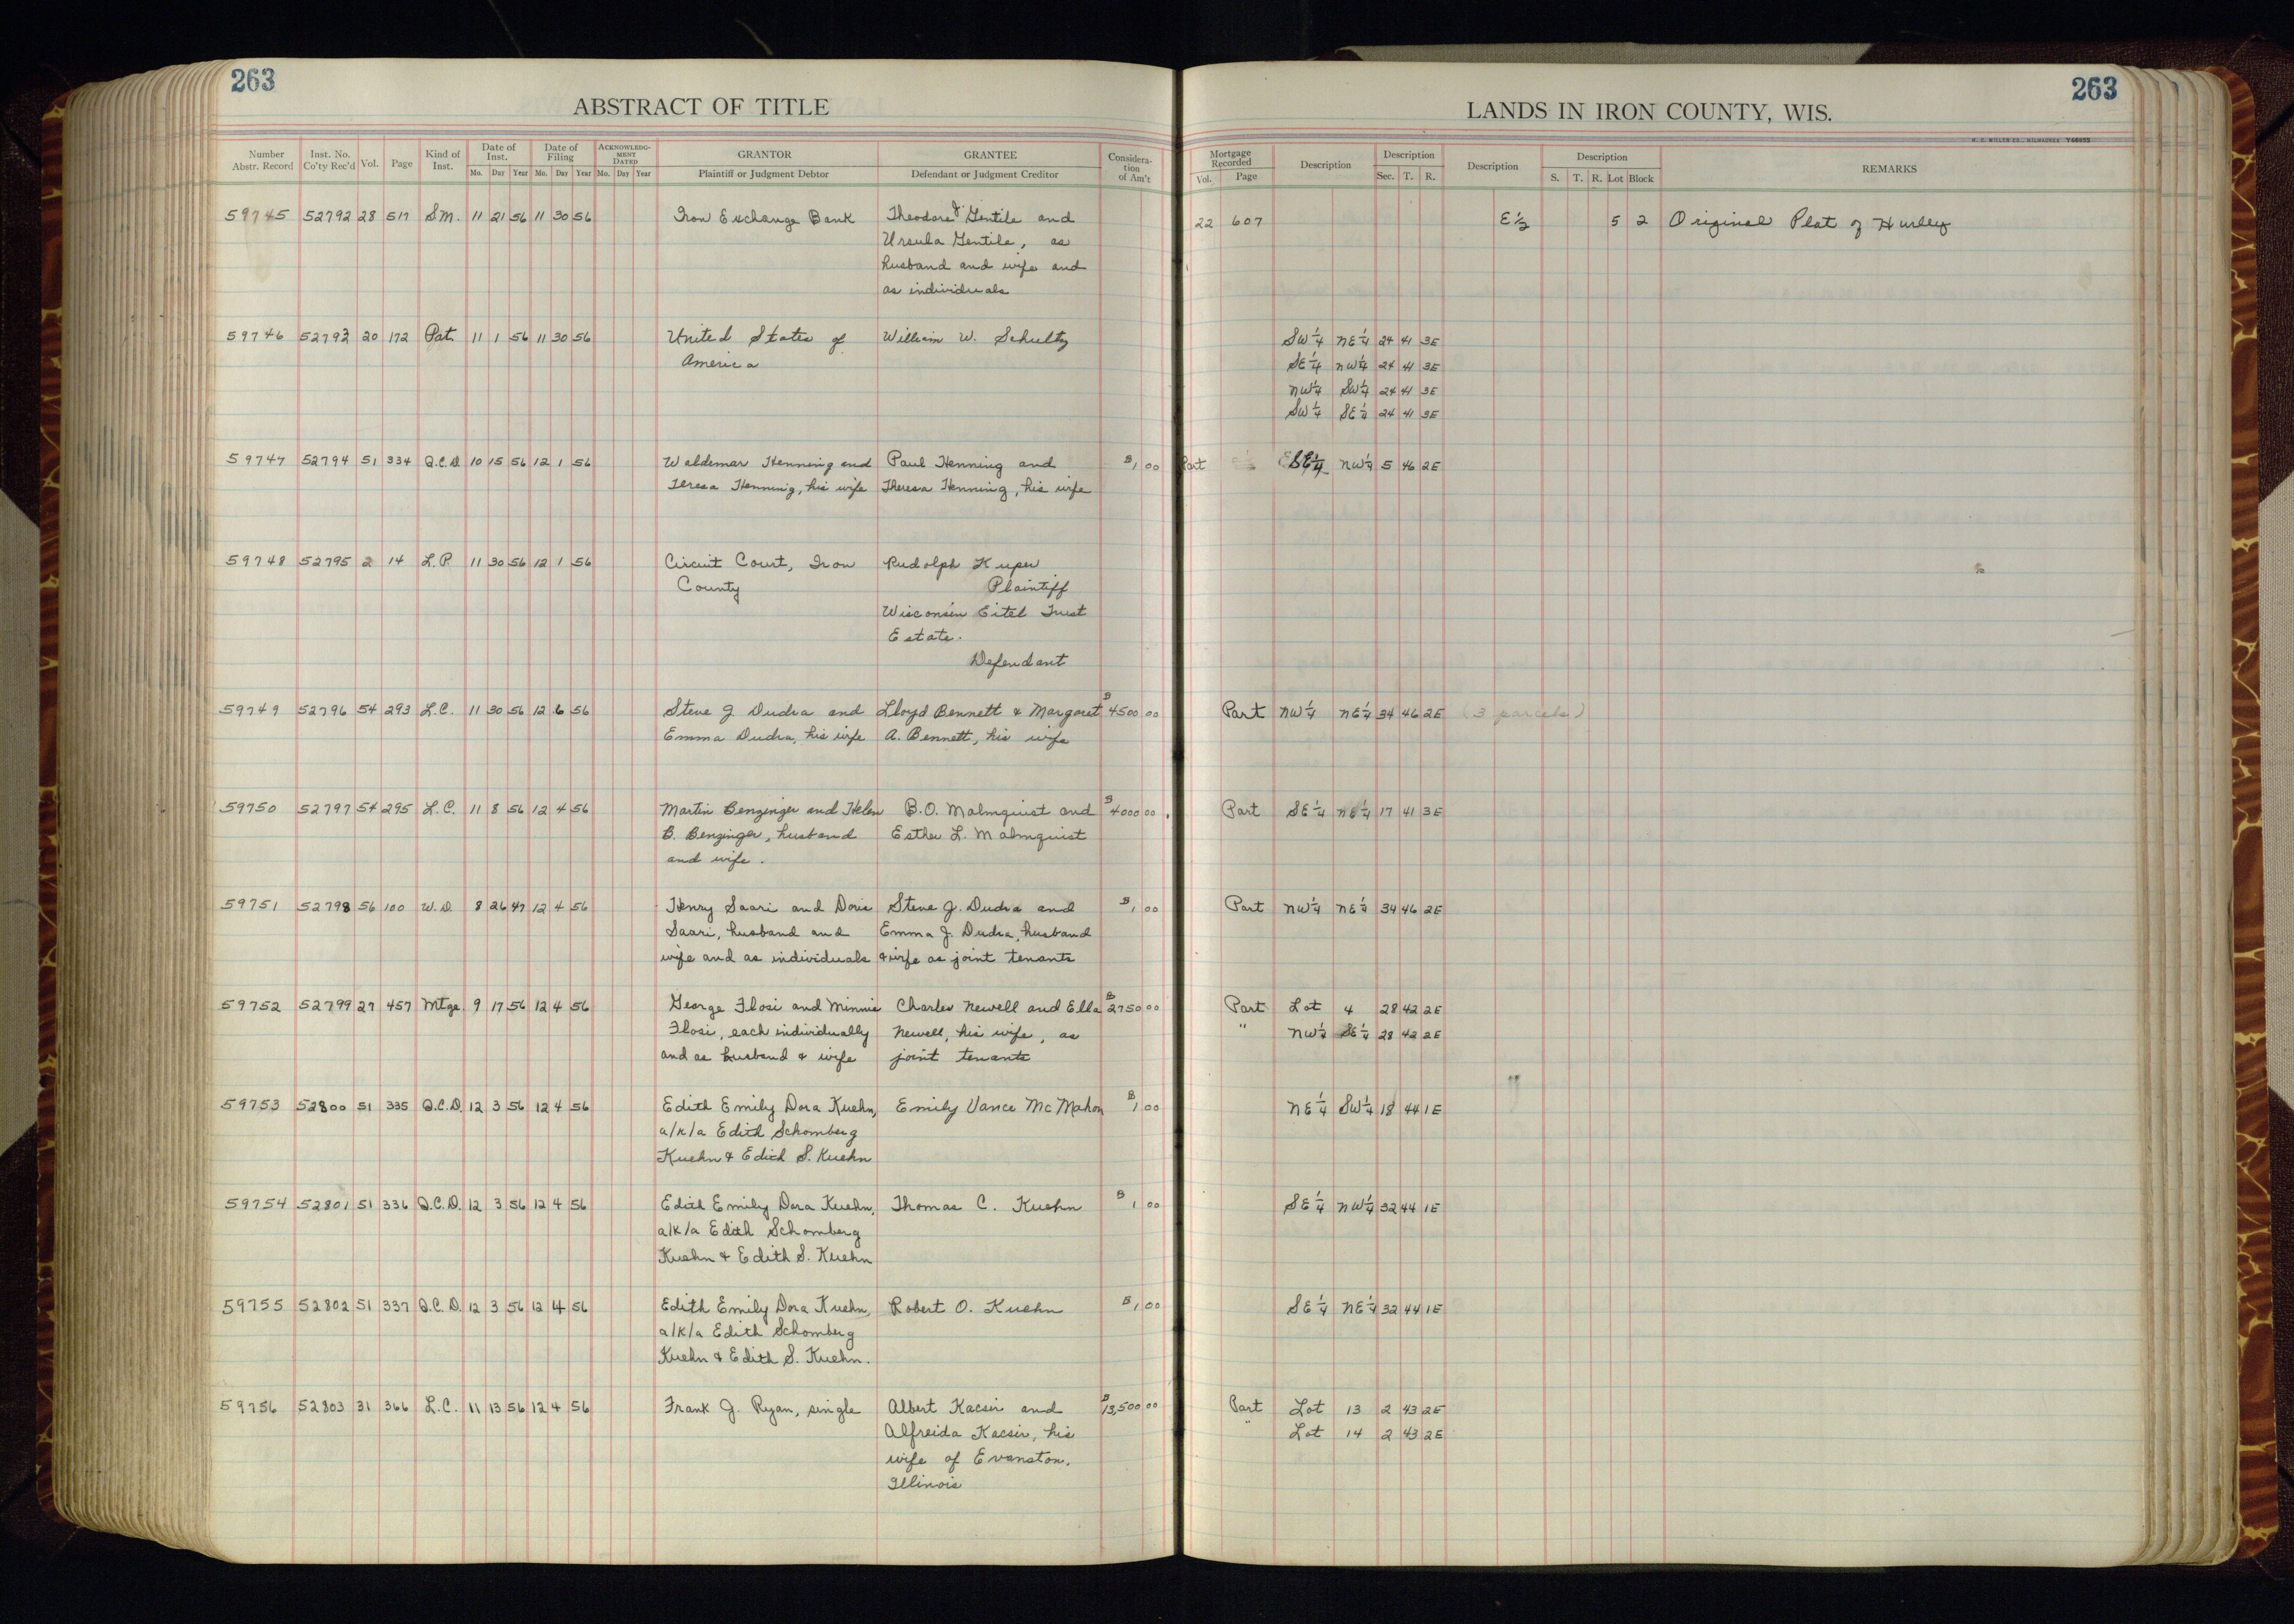 263
ABSTRACT OF TITLE
LANDS IN IRON COUNTY, WIS.
263
H. C. MILLER CO., MILWAUKEE Y66655
Number Abstr. Record | Inst. No. Co'ty Rec'd | Vol. | Page | Kind of Inst. | Date of Inst. Mo. Day Year | Date of Filing Mo. Day Year | ACKNOWLEDGMENT DATED Mo. Day Year | GRANTOR Plaintiff or Judgment Debtor | GRANTEE Defendant or Judgment Creditor | Consideration of Am't | Mortgage Recorded Vol. Page | Description | Description Sec. T. R. | Description | Description S. T. R. Lot Block | REMARKS
59745 52792 28 517 S.M. 11 21 56 11 30 56 Iron Exchange Bank Theodore J. Gentile and 22 607 E½ 5 2 Original Plat of Hurley
Ursula Gentile, as
husband and wife and
as individuals
59746 52793 20 172 Pat. 11 1 56 11 30 56 United States of William W. Schultz SW¼ NE¼ 24 41 3E
America SE¼ NW¼ 24 41 3E
NW¼ SW¼ 24 41 3E
SW¼ SE¼ 24 41 3E
59747 52794 51 334 Q.C.D. 10 15 56 12 1 56 Waldemar Henning and Paul Henning and $1 00 Part SE¼ NW¼ 5 46 2E
Teresa Henning, his wife Theresa Henning, his wife
59748 52795 2 14 L.P. 11 30 56 12 1 56 Circuit Court, Iron Rudolph Kuper
County Plaintiff
Wisconsin Eitel Trust
Estate.
Defendant
59749 52796 54 293 L.C. 11 30 56 12 6 56 Steve J. Dudra and Lloyd Bennett & Margaret $4500 00 Part NW¼ NE¼ 34 46 2E (3 parcels)
Emma Dudra, his wife A. Bennett, his wife
59750 52797 54 295 L.C. 11 8 56 12 4 56 Martin Benzinger and Helen B.O. Malmquist and $4000 00 Part SE¼ NE¼ 17 41 3E
B. Benzinger, husband Esther L. Malmquist
and wife.
59751 52798 56 100 W.D. 8 26 47 12 4 56 Henry Saari and Doris Steve J. Dudra and $1 00 Part NW¼ NE¼ 34 46 2E
Saari, husband and Emma J. Dudra, husband
wife and as individuals & wife as joint tenants
59752 52799 27 457 Mtge. 9 17 56 12 4 56 George Flosi and Minnie Charles Newell and Ella $2750 00 Part Lot 4 28 42 2E
Flosi, each individually Newell, his wife, as " NW¼ SE¼ 28 42 2E
and as husband & wife joint tenants
59753 52800 51 335 Q.C.D. 12 3 56 12 4 56 Edith Emily Dora Kuehn, Emily Vance McMahon $1 00 NE¼ SW¼ 18 44 1E
a/k/a Edith Schomberg
Kuehn & Edith S. Kuehn
59754 52801 51 336 Q.C.D. 12 3 56 12 4 56 Edith Emily Dora Kuehn, Thomas C. Kuehn $1 00 SE¼ NW¼ 32 44 1E
a/k/a Edith Schomberg
Kuehn & Edith S. Kuehn
59755 52802 51 337 Q.C.D. 12 3 56 12 4 56 Edith Emily Dora Kuehn, Robert O. Kuehn $1 00 SE¼ NE¼ 32 44 1E
a/k/a Edith Schomberg
Kuehn & Edith S. Kuehn.
59756 52803 31 366 L.C. 11 13 56 12 4 56 Frank J. Ryan, single Albert Kacsir and $13,500 00 Part Lot 13 2 43 2E
Alfreida Kacsir, his " Lot 14 2 43 2E
wife of Evanston,
Illinois